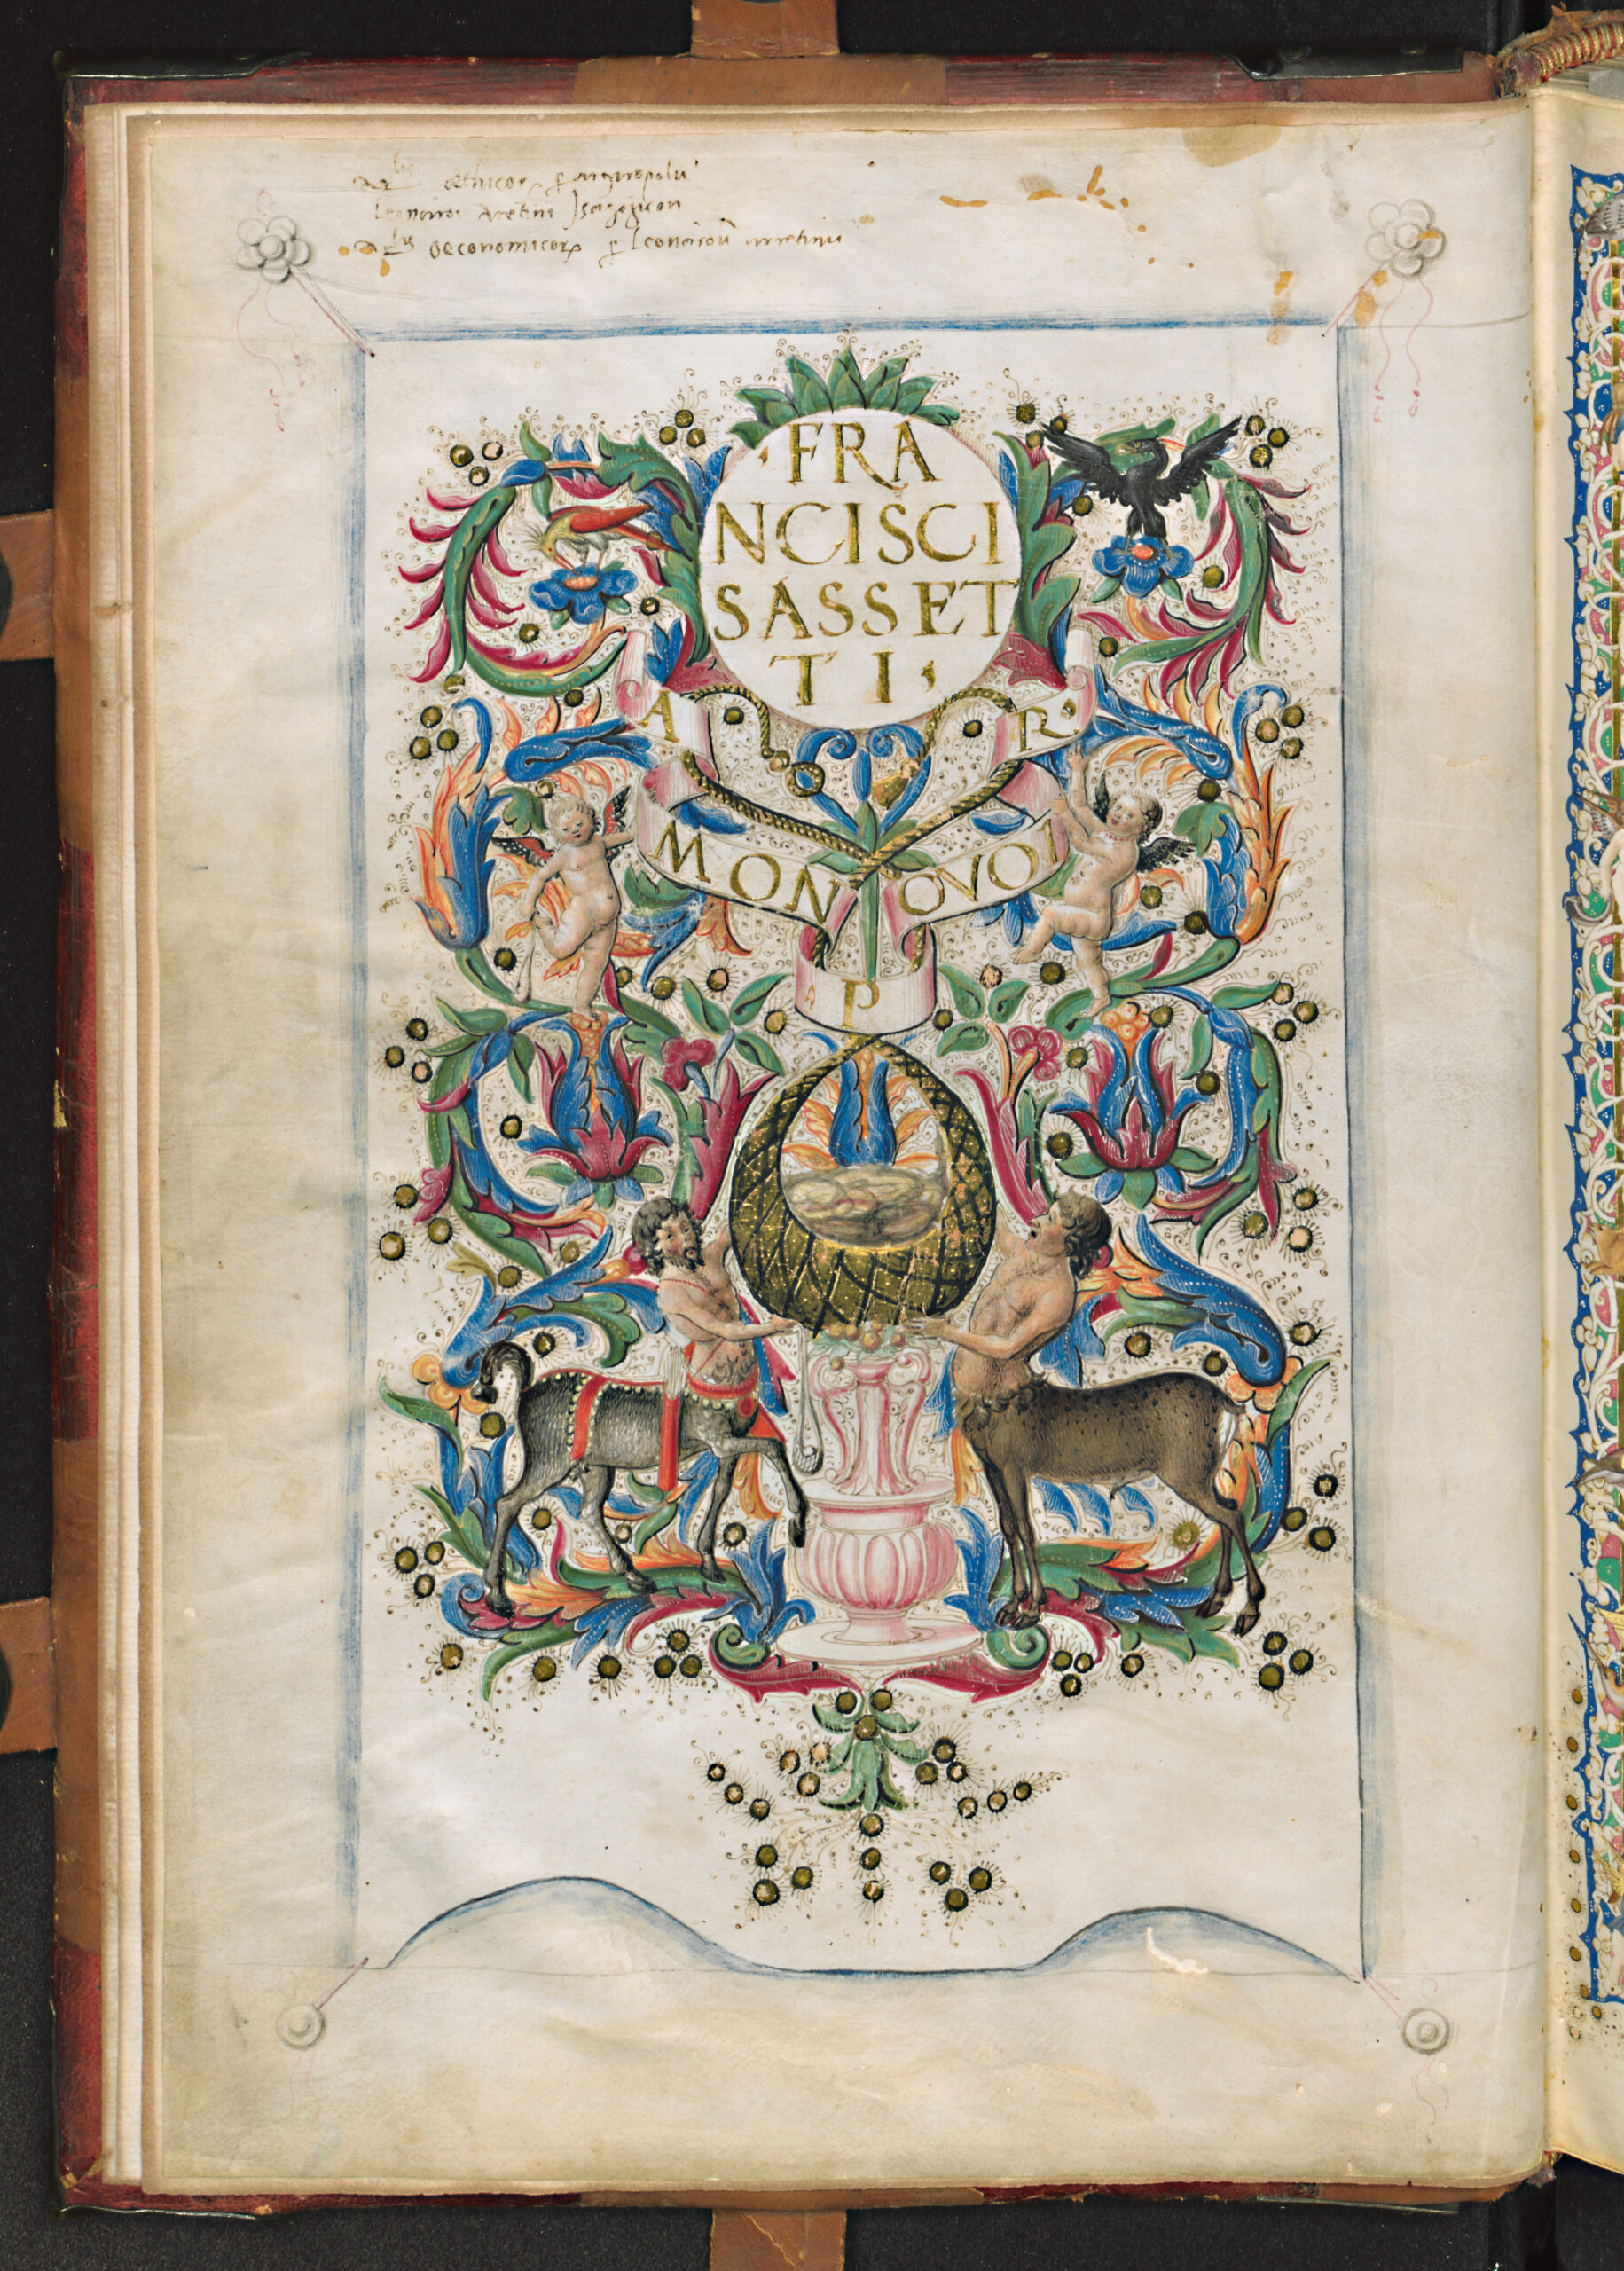 Ar^lis ethicor₎ p argiropolu
Leonardi Aretini Isagogicon
Ar^lis oeconomicor₎ p Leonardū arretinū
'FRA
NCISCI
SASSET
TI,
A
MON
P
OVOI
R·